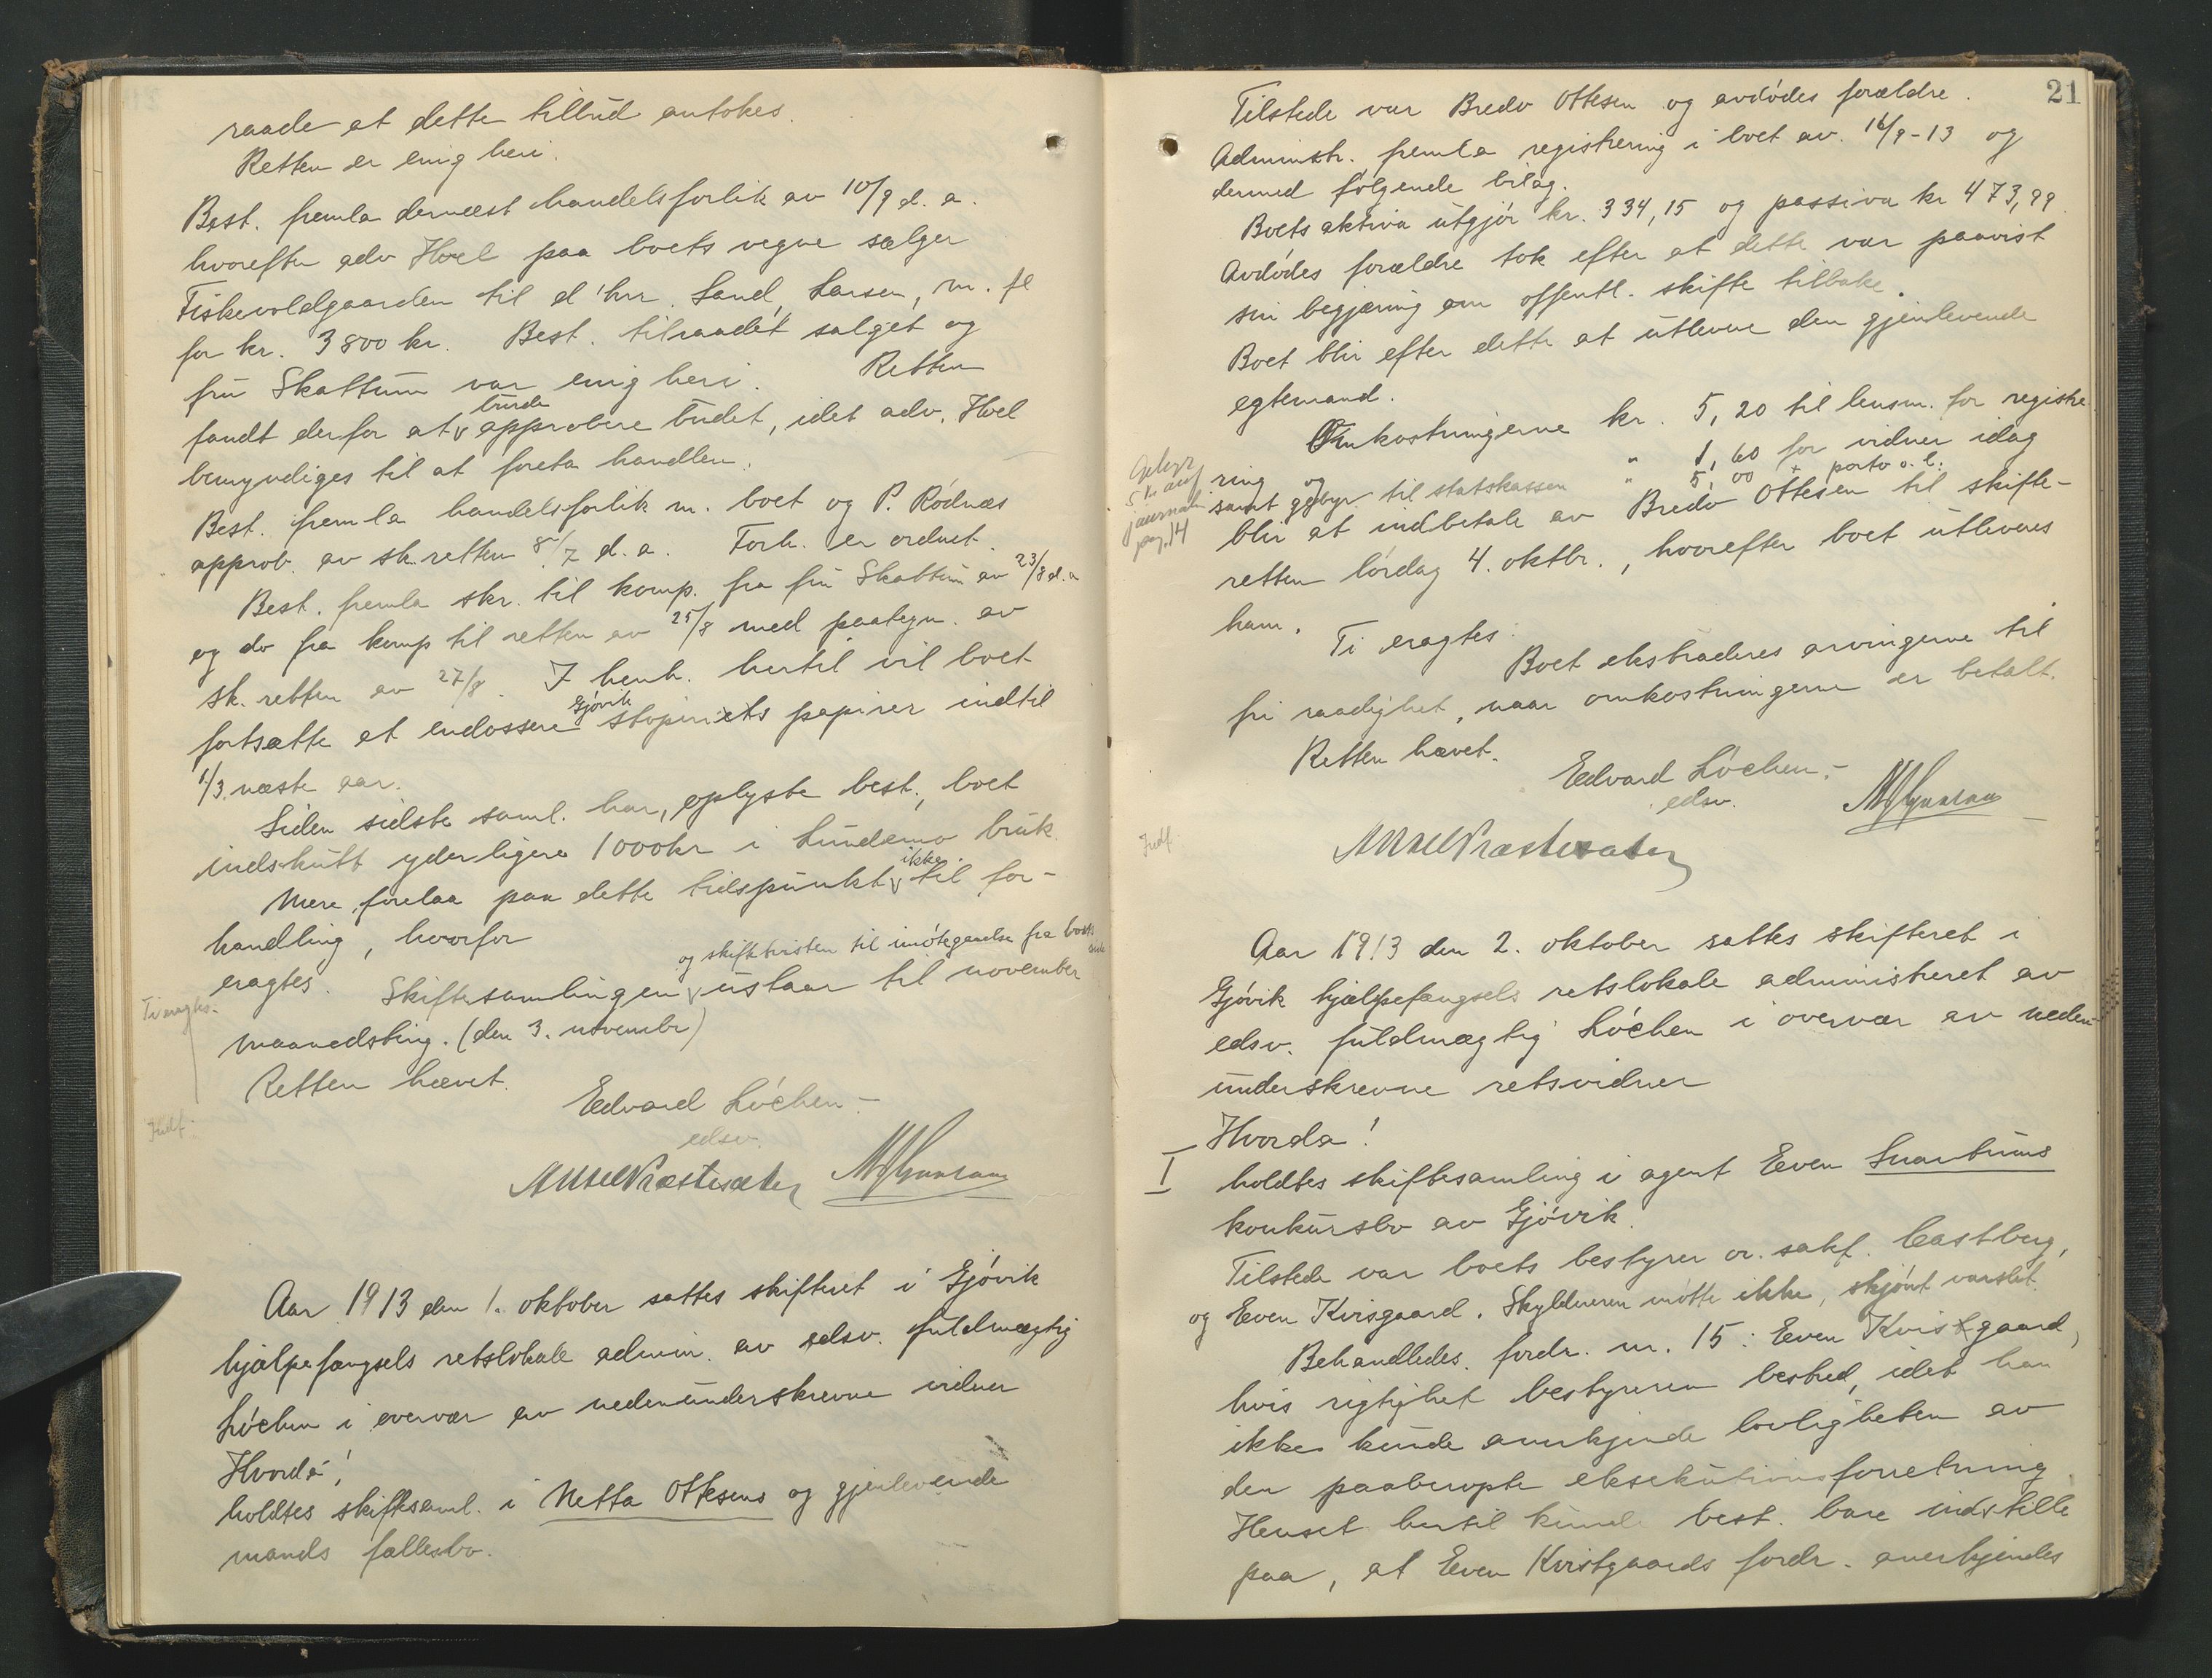 raade at dette tilbud antokes.
Retten er enig heri.
Best. fremla dernæst handelsforlik av 10/9 d. a.
hvorefter adv Hoel paa boets vegne sælger
Fiskevoldgaarden til d'hrr. Sand, Larsen, m. fl
for kr. 3800 kr. Best. tilraadet salget og
fru Skattum var enig heri. Retten
fandt derfor at burde approbere budet, idet adv. Hoel
bemyndiges til at foreta handlen.
Best. fremla handelsforlik m. boet og P. Rödnæs
approb. av sk.retten 8/7 d. a. Forh. er ordnet.
Best. fremla skr. til komp. fra fru Skattum av 23/8 d. a
og do fra komp til retten av 25/8 med paategn. av
sk. retten av 27/8. I henh. hertil vil boet
fortsætte at endossere Gjövik stoperiets papirer indtil
1/3. næste aar.
Siden sidste saml. har, oplyste best., boet
indskutt yderligere 1000kr i Lundemo bruk.
Mere forelaa paa dette tidspunkt ikke til for-
handling, hvorfor
og skiftetvisten til imötegaaelse fra boets side
eragtes. Skiftesamlingen utstaar til november
Ti eragtes.
maanedsting. (den 3. novembr)
Retten hævet.
Edvard Löchen.-
edsv.
Indf.
Aar 1913 den 1. oktober sattes skifteret i Gjövik
hjælpefængsels retslokale admin. av edsv. fuldmægtig
Löchen i overvær av nedenunderskrevne vidner
Hvorda!
holdtes skiftesaml. i Netta Ottesens og gjenlevende
mands fællesbo.
21
Tilstede var Bredo Ottesen og avdödes forældre.
Administr. fremla registrering i boet av. 16/9-13 og
dermed fölgende bilag.
Boets aktiva utgjör kr. 334,15 og passiva kr 473,99
Avdödes forældre tok efter at dette var paavist
sin begjæring om offentl. skifte tilbake.
Boet blir efter dette at utlevere den gjenlevende
egtemand.
Omkostningerne kr. 5,20 til lensm. for registre
ring og " 1,60 for vidner idag
samt gebyr til statskassen " 5,00 + porto o. l.
Gebyr
5 kr anf
journalen
pag. 14
blir at indbetale av Bredo Ottesen til skifte-
retten lördag 4. oktbr., hvorefter boet utleveres
ham.
Ti eragtes:
Boet ekstraderes arvingerne til
fri raadighet, naar omkostningerne er betalt.
Retten hævet.
Edvard Löchen.-
edsv.
Indf.
Aar 1913 den 2. oktober sattes skifteret i
Gjövik hjælpefængsels retslokale administreret av
edsv. fuldmægtig Löchen i overvær av neden-
underskrevne retsvidner
Hvorda!
I holdtes skiftesamling i agent Even Snartums
konkursbo av Gjövik.
Tilstede var boets bestyrer or. sakf. Castberg,
og Even Kvisgaard. Skyldneren mötte ikke, skjönt varslet.
Behandledes fordr. nr. 15: Even Kvistgaard,
hvis rigtighet bestyreren bestred, idet han
ikke kunde anerkjende lovligheten av
den paaberopte eksekutionsforretning
Henset hertil kunde best. bare indstille
paa, at Even Kvistgaards fordr. anerkjendes